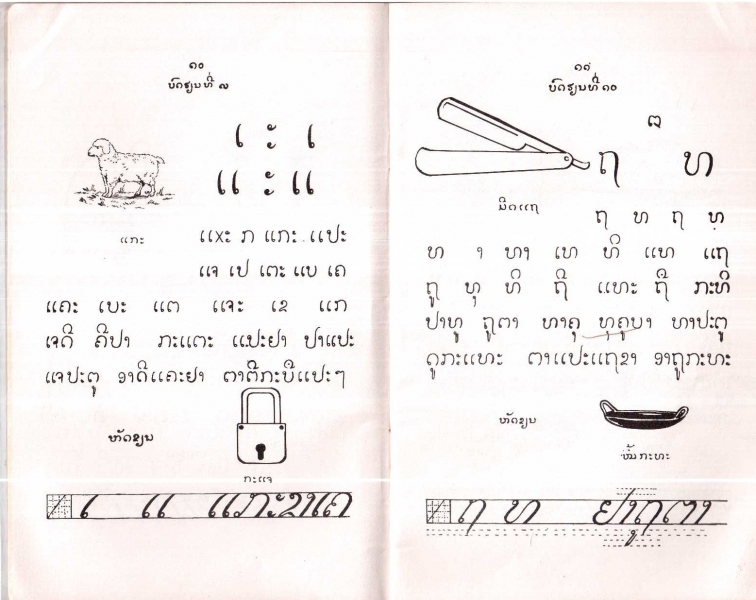 ໑໐
ບົດຮຽນທີ່ ໗
ເ ະ ເ
ແ ະ ແ
ແກະ
ແxະ ກ ແກະ ແປະ
ແຈ ເປ ເຕະ ແບ ເຄ
ແຄະ ເບະ ແຕ ແຈະ ເຂ ແກ
ເຈດີ ຄີປາ ກະແຕະ ແປະຢາ ປາແປະ
ແຈປະຕູ ອາດີແຄະຢາ ຕາຕີກະບີແປະໆ
ຫັດຂຽນ
ກະແຈ
ເ ແ ແກະຂາແຄ
ບົດຮຽນທີ່ ໑໐
ຖ ທ
ມີດແຖ
ຖ ທ ຖ ທ
ທ າ ທາ ເທ ທິ ແທ ແຖ
ຖູ ທຸ ທິ ຖີ ແທະ ຖີ ກະທິ
ປາທູ ຖູຕາ ທາຄູ ທຸຄູບາ ທາປະຕູ
ຖູກະແທະ ຕາແປະແຖຂາ ອາຖູກະທະ
ຫັດຂຽນ
ໝໍ້ກະທະ
ຖ ທ ຢາຖູຕາ